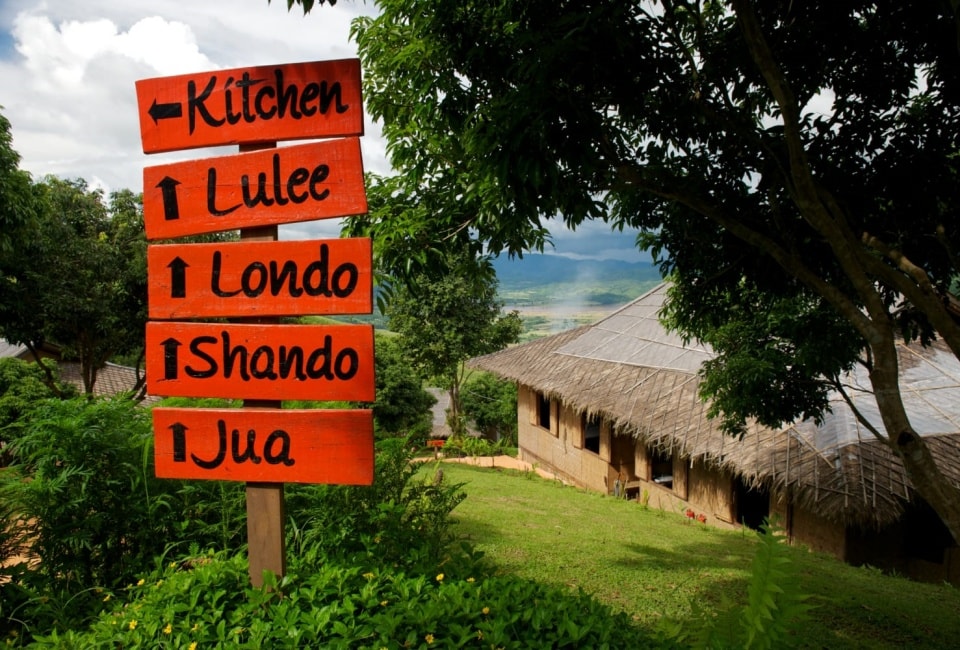 ←Kitchen
↑ Lulee
↑ Londo
↑Shando
↑Jua